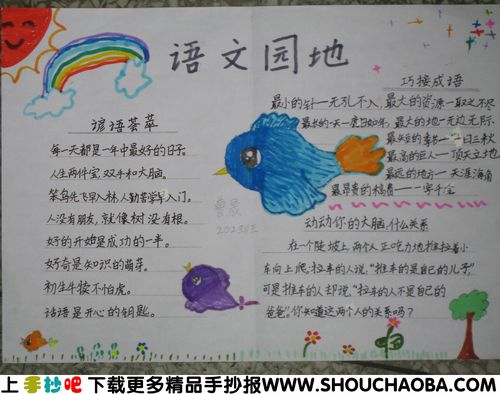 语文园地
谚语荟萃
每一天都是一年中最好的日子。
人生两件宝,双手和大脑。
笨鸟先飞早入林,人勤苦学早入门。
人没有朋友,就像树没有根。
好的开始是成功的一半。
好奇是知识的萌芽。
初生牛犊不怕虎。
话语是开心的钥匙。
巧接成语
最小的针——无孔不入,最大的资源——取之不尽
最长的一天——度日如年,最大的地——无边无际
最短的季节——一日三秋
最高的巨人——顶天立地
最远的地方——天涯海角
最昂贵的稿费——一字千金
动动你的大脑,什么关系
在一个陡坡上,两个人正吃力地推拉着小
车向上爬,拉车的人说,“推车的是自己的儿子”,
可是推车的人却说,“拉车的人不是自己的
爸爸”。你知道这两个人的关系吗?
上手抄吧 下载更多精品手抄报WWW.SHOUCHAOBA.COM